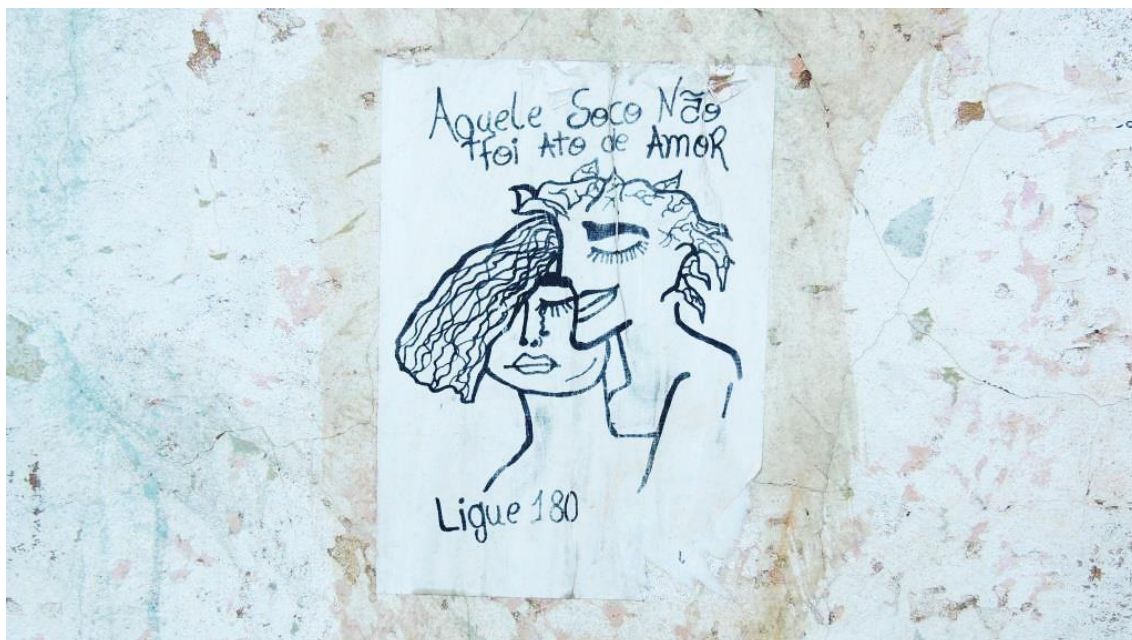 Aquele Soco Não
foi Ato de AMOR
Ligue 180